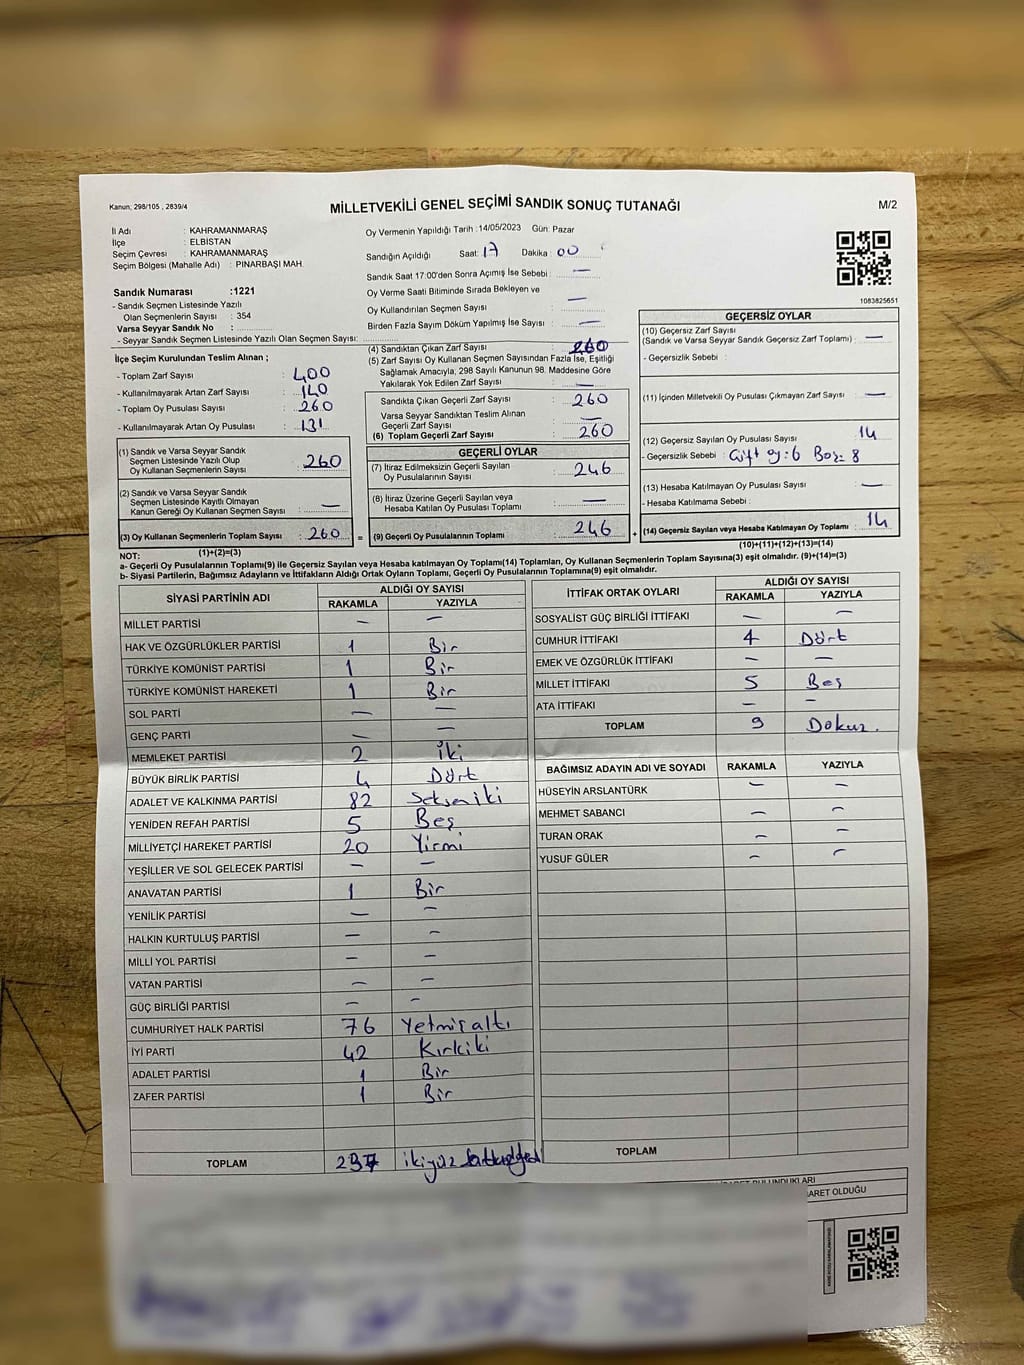 Kanun, 298/105 , 2839/4
MİLLETVEKİLİ GENEL SEÇİMİ SANDIK SONUÇ TUTANAĞI
M/2
İl Adı : KAHRAMANMARAŞ
İlçe : ELBİSTAN
Seçim Çevresi : KAHRAMANMARAŞ
Seçim Bölgesi (Mahalle Adı) : PINARBAŞI MAH.
Sandık Numarası :1221
- Sandık Seçmen Listesinde Yazılı
Olan Seçmenlerin Sayısı : 354
Varsa Seyyar Sandık No :
- Seyyar Sandık Seçmen Listesinde Yazılı Olan Seçmen Sayısı:
İlçe Seçim Kurulundan Teslim Alınan ;
- Toplam Zarf Sayısı : 400
- Kullanılmayarak Artan Zarf Sayısı : 140
- Toplam Oy Pusulası Sayısı : 260
- Kullanılmayarak Artan Oy Pusulası : 131
(1) Sandık ve Varsa Seyyar Sandık
Seçmen Listesinde Yazılı Olup
Oy Kullanan Seçmenlerin Sayısı : 260
(2) Sandık ve Varsa Seyyar Sandık
Seçmen Listesinde Kayıtlı Olmayan
Kanun Gereği Oy Kullanan Seçmen Sayısı : —
(3) Oy Kullanan Seçmenlerin Toplam Sayısı : 260
(1)+(2)=(3)
Oy Vermenin Yapıldığı Tarih :14/05/2023 Gün: Pazar
Sandığın Açıldığı Saat: 17 Dakika : 00
Sandık Saat 17:00'den Sonra Açımış İse Sebebi : —
Oy Verme Saati Bitiminde Sırada Bekleyen ve
Oy Kullandırılan Seçmen Sayısı : —
Birden Fazla Sayım Döküm Yapılmış İse Sayısı : —
(4) Sandıktan Çıkan Zarf Sayısı : 260
(5) Zarf Sayısı Oy Kullanan Seçmen Sayısından Fazla İse, Eşitliği
Sağlamak Amacıyla, 298 Sayılı Kanunun 98. Maddesine Göre
Yakılarak Yok Edilen Zarf Sayısı : —
Sandıkta Çıkan Geçerli Zarf Sayısı : 260
Varsa Seyyar Sandıktan Teslim Alınan
Geçerli Zarf Sayısı : —
(6) Toplam Geçerli Zarf Sayısı : 260
=
GEÇERLİ OYLAR
(7) İtiraz Edilmeksizin Geçerli Sayılan
Oy Pusulalarının Sayısı : 246
(8) İtiraz Üzerine Geçerli Sayılan veya
Hesaba Katılan Oy Pusulası Toplamı : —
(9) Geçerli Oy Pusulalarının Toplamı : 246
+
1083825651
GEÇERSİZ OYLAR
(10) Geçersiz Zarf Sayısı
(Sandık ve Varsa Seyyar Sandık Geçersiz Zarf Toplamı) : —
- Geçersizlik Sebebi :
(11) İçinden Milletvekili Oy Pusulası Çıkmayan Zarf Sayısı : —
(12) Geçersiz Sayılan Oy Pusulası Sayısı : 14
- Geçersizlik Sebebi : Çift oy: 6 Boş: 8
(13) Hesaba Katılmayan Oy Pusulası Sayısı : —
- Hesaba Katılmama Sebebi :
(14) Geçersiz Sayılan veya Hesaba Katılmayan Oy Toplamı : 14
(10)+(11)+(12)+(13)=(14)
NOT:
a- Geçerli Oy Pusulalarının Toplamı(9) ile Geçersiz Sayılan veya Hesaba katılmayan Oy Toplamı(14) Toplamları, Oy Kullanan Seçmenlerin Toplam Sayısına(3) eşit olmalıdır. (9)+(14)=(3)
b- Siyasi Partilerin, Bağımsız Adayların ve İttifakların Aldığı Ortak Oyların Toplamı, Geçerli Oy Pusulalarının Toplamına(9) eşit olmalıdır.
SİYASİ PARTİNİN ADI ALDIĞI OY SAYISI
RAKAMLA YAZIYLA
MİLLET PARTİSİ — —
HAK VE ÖZGÜRLÜKLER PARTİSİ 1 Bir
TÜRKİYE KOMÜNİST PARTİSİ 1 Bir
TÜRKİYE KOMÜNİST HAREKETİ 1 Bir
SOL PARTİ — —
GENÇ PARTİ — —
MEMLEKET PARTİSİ 2 İki
BÜYÜK BİRLİK PARTİSİ 4 Dört
ADALET VE KALKINMA PARTİSİ 82 Seksen iki
YENİDEN REFAH PARTİSİ 5 Beş
MİLLİYETÇİ HAREKET PARTİSİ 20 Yirmi
YEŞİLLER VE SOL GELECEK PARTİSİ — —
ANAVATAN PARTİSİ 1 Bir
YENİLİK PARTİSİ — —
HALKIN KURTULUŞ PARTİSİ — —
MİLLİ YOL PARTİSİ — —
VATAN PARTİSİ — —
GÜÇ BİRLİĞİ PARTİSİ — —
CUMHURİYET HALK PARTİSİ 76 Yetmiş altı
İYİ PARTİ 42 Kırkiki
ADALET PARTİSİ 1 Bir
ZAFER PARTİSİ 1 Bir
TOPLAM 237 ikiyüz
İTTİFAK ORTAK OYLARI ALDIĞI OY SAYISI
RAKAMLA YAZIYLA
SOSYALİST GÜÇ BİRLİĞİ İTTİFAKI — —
CUMHUR İTTİFAKI 4 Dört
EMEK VE ÖZGÜRLÜK İTTİFAKI — —
MİLLET İTTİFAKI 5 Beş
ATA İTTİFAKI — —
TOPLAM 9 Dokuz.
BAĞIMSIZ ADAYIN ADI VE SOYADI RAKAMLA YAZIYLA
HÜSEYİN ARSLANTÜRK — —
MEHMET SABANCI — —
TURAN ORAK — —
YUSUF GÜLER — —
TOPLAM
ARET OLDUĞU